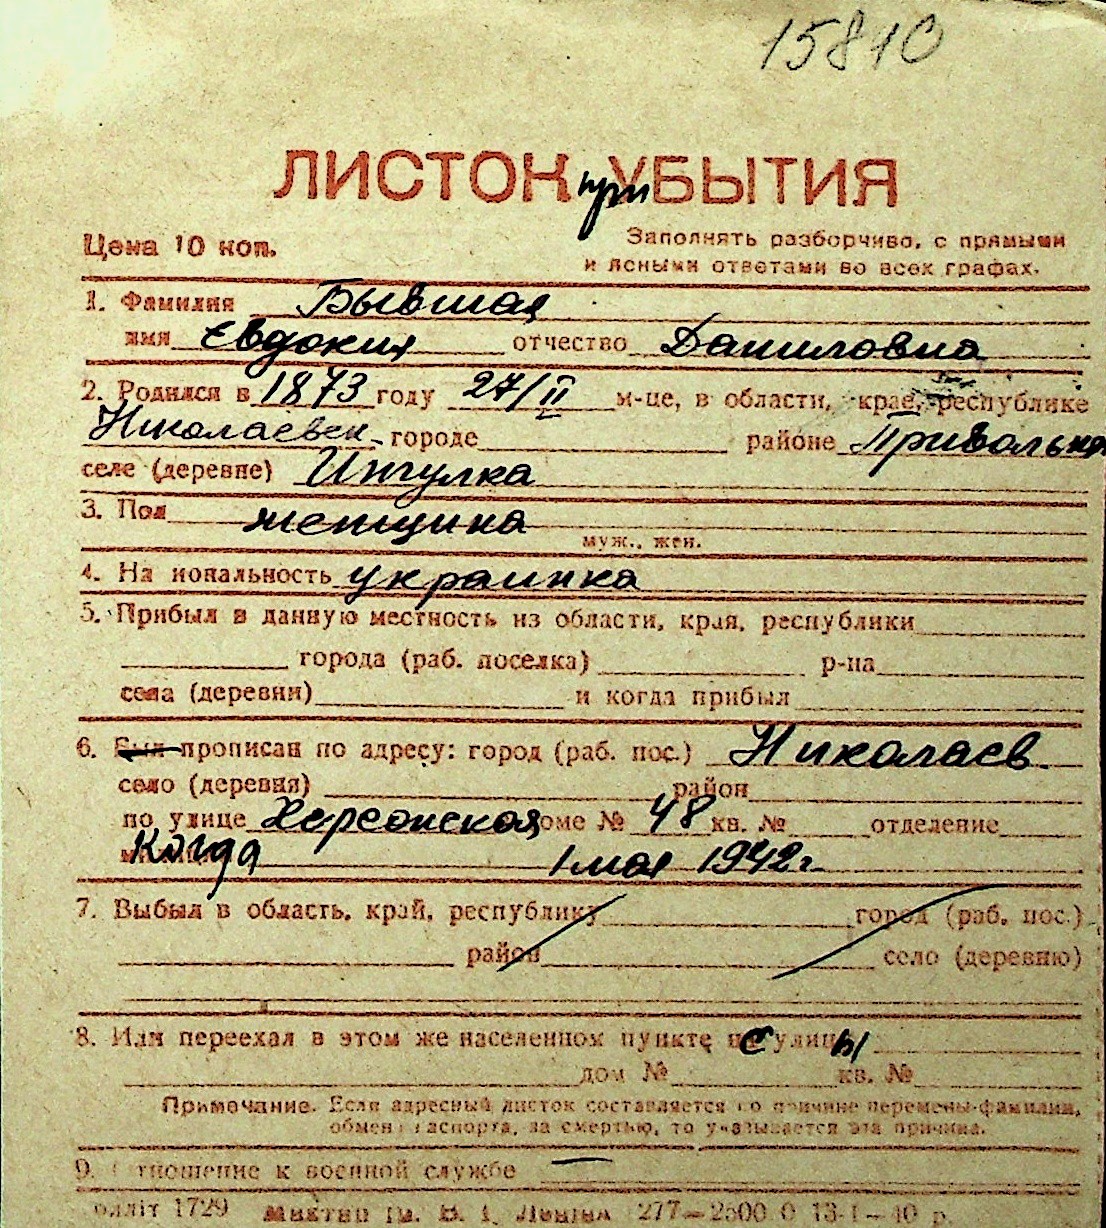 15810
ЛИСТОК при УБЫТИЯ
Цена 10 коп.
Заполнять разборчиво, с прямыми
и ясными ответами во всех графах.
1. Фамилия Бывшая
имя Евдокия отчество Даниловна
2. Родился в 1873 году 27/II м-це, в области, крае, республике
Николаевск. городе районе Привольнян
селе (деревне) Ингулка
3. Пол женщина
муж., жен.
4. Национальность украинка
5. Прибыл в данную местность из области, края, республики
города (раб. поселка) р-на
села (деревни) и когда прибыл
6. Был прописан по адресу: город (раб. пос.) Николаев
село (деревня) район
по улице Херсонская доме № 48 кв. № отделение
Когда 1 мая 1942 г.
7. Выбыл в область, край, республику город (раб. пос.)
район село (деревню)
8. Или переехал в этом же населенном пункте с улицы
дом № кв. №
Примечание. Если адресный листок составляется по причине перемены фамилии,
обмена паспорта, за смертью, то указывается эта причина.
9. Отношение к военной службе —
олліт 1729 277—2500 0 13-I—40 р